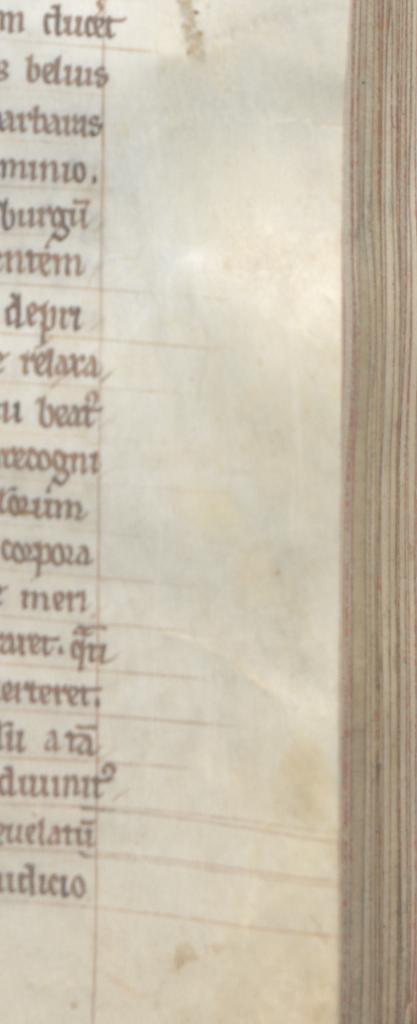 m ducet
s beluis
arbaris
minio.
burgū
entem
depri
relaxa
u beatꝰ
recogni
torum
corpora
meri
raret. q̄n
erteret.
su a tā
diuinitꝰ
euelatū
iudicio